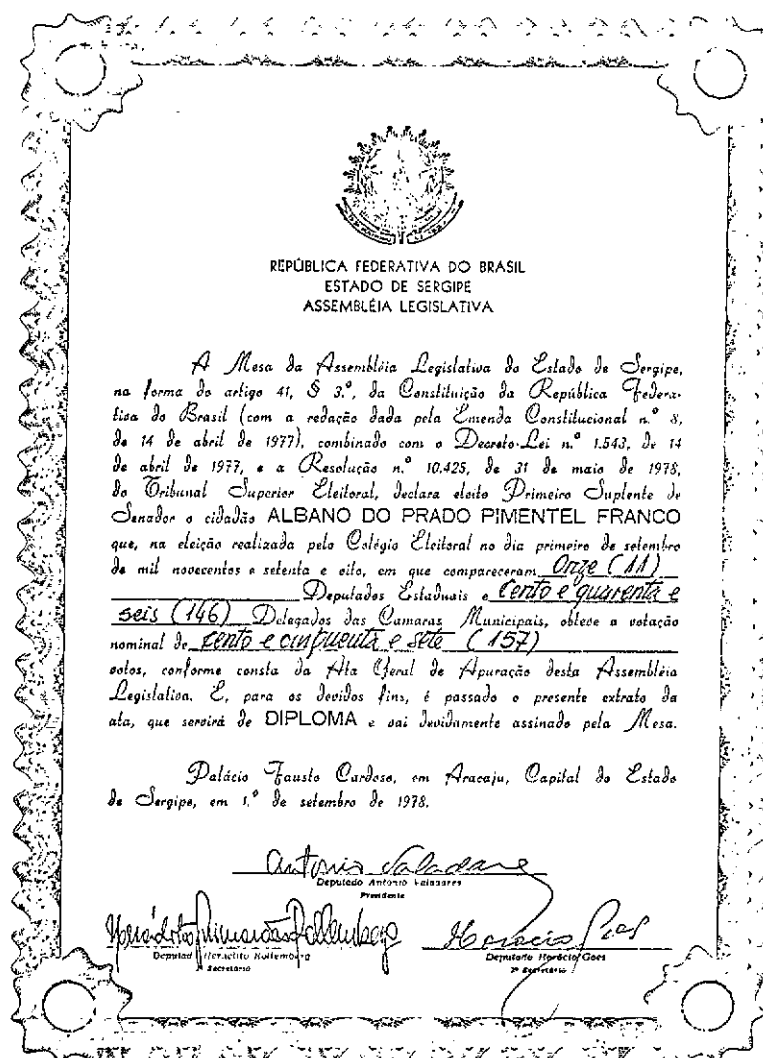 REPÚBLICA FEDERATIVA DO BRASIL
ESTADO DE SERGIPE
ASSEMBLÉIA LEGISLATIVA
A Mesa da Assembléia Legislativa do Estado de Sergipe,
na forma do artigo 41, § 3.º, da Constituição da República Federa-
tiva do Brasil (com a redação dada pela Emenda Constitucional n.º 8,
de 14 de abril de 1977), combinado com o Decreto-Lei n.º 1.543, de 14
de abril de 1977, e a Resolução n.º 10.425, de 31 de maio de 1978,
do Tribunal Superior Eleitoral, declara eleito Primeiro Suplente de
Senador o cidadão ALBANO DO PRADO PIMENTEL FRANCO
que, na eleição realizada pelo Colégio Eleitoral no dia primeiro de setembro
de mil novecentos e setenta e oito, em que compareceram Onze (11)
Deputados Estaduais e Cento e quarenta e
seis (146) Delegados das Camaras Municipais, obteve a votação
nominal de cento e cinquenta e sete (157)
votos, conforme consta da Ata Geral de Apuração desta Assembléia
Legislativa. E, para os devidos fins, é passado o presente extrato da
ata, que servirá de DIPLOMA e vai devidamente assinado pela Mesa.
Palácio Fausto Cardoso, em Aracaju, Capital do Estado
de Sergipe, em 1.º de setembro de 1978.
Antonio Valadares
Deputado Antonio Valadares
Presidente
Deputado Heráclito Rollemberg
Secretário
Horácio Goes
Deputado Horácio Goes
2º Secretário